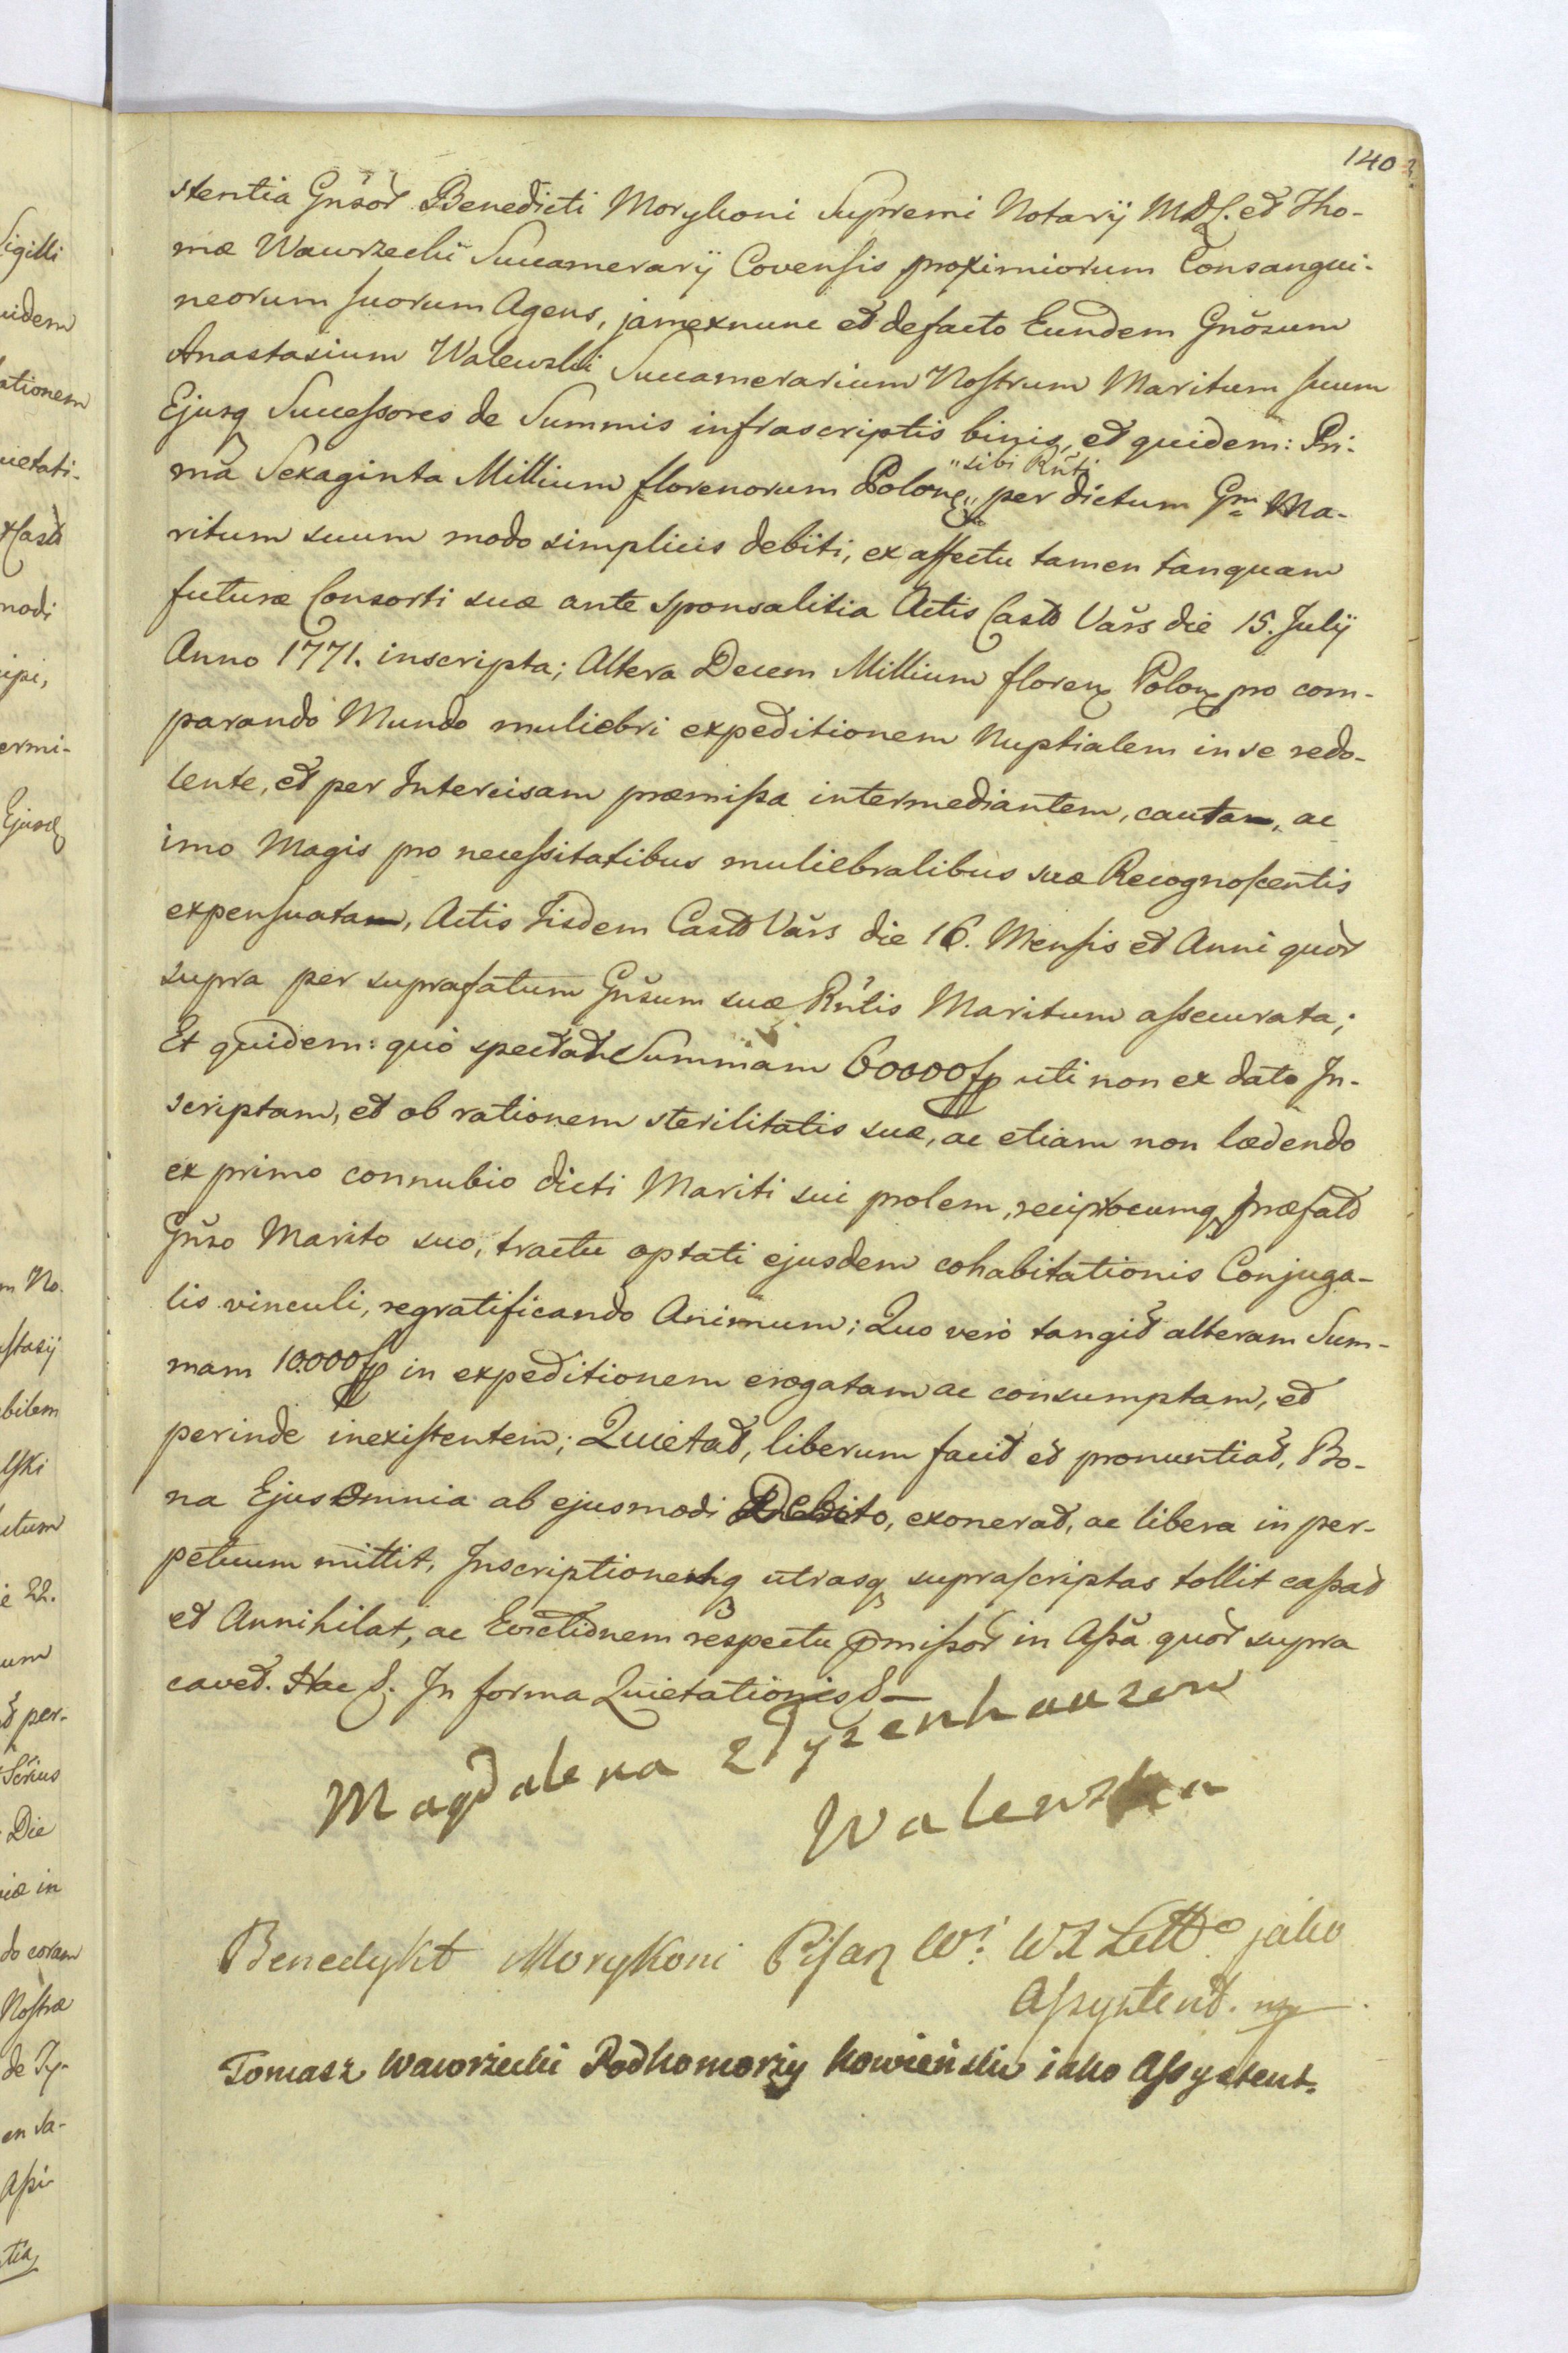 140
stentia Gnsör Benedicti Morykoni Supremi Notarÿ MDL. et Tho-
mæ Wawrzecki Succamerarÿ Covensis proximiorum Consangui-
neorum suorum Agens, jamexnunc et defacto Eundem Gnösum
Anastasium Walewski Succamerarium Nostrum Maritum suum
Ejusq Successores de Summis infrascriptis binis, et quidem: Pri-
mä Sexaginta Millium florenorum Polonę "sibi Rnti" per dictum Gm Ma-
ritum suum modo simplicis debiti, ex affectu tamen tanquam
futuræ Consorti suæ ante sponsalitia Actis Castr Värs die 15. Julÿ
Anno 1771. inscripta; Altera Decem Millium floren Polon pro com-
parando Mundo muliebri expeditionem Nuptialem in se redo-
lente, et per Intercisam præmissa intermediantem, cauta, ac
imo Magis pro necessitatibus muliebralibus suæ Recognoscentis
expensuata, Actis Iisdem Castr Värs die 16. Mensis et Anni quör
supra per suprafatum Gnsum suæ Rntis Maritum assecurata;
Et quidem: quò spectat Summam 60000 fp uti non ex dato In-
scriptam, et ob rationem sterilitatis suæ, ac etiam non lædendo
ex primo connubio dicti Mariti sui prolem, reciprocumq præfato
Gnso Marito suo, tractu optati ejusdem cohabitationis Conjuga-
lis vinculi, regratificando Animum; Quo verò tangit alteram Sum-
mam 10.000 fp in expeditionem erogatam ac consumptam, et
perinde inexistentem; Quietat, liberum facit et pronuntiat, Bo-
na Ejus Omnia ab ejusmodi Debito, exonerat, ac libera in per-
petuum mittit, Inscriptionesq utrasq suprascriptas tollit cassat
et Annihilat, ac Evictionem respectu pmissor in Assä quör supra
cavet. Hac S. In forma Quietationis S-
Magdalena z Tyzenhauzow
Walewska
Benedykt Morykoni Pisarz W. W X Litt jako
Assystent. mp
Tomasz Wawrzecki Podkomorzy kowieński iako Assystent.